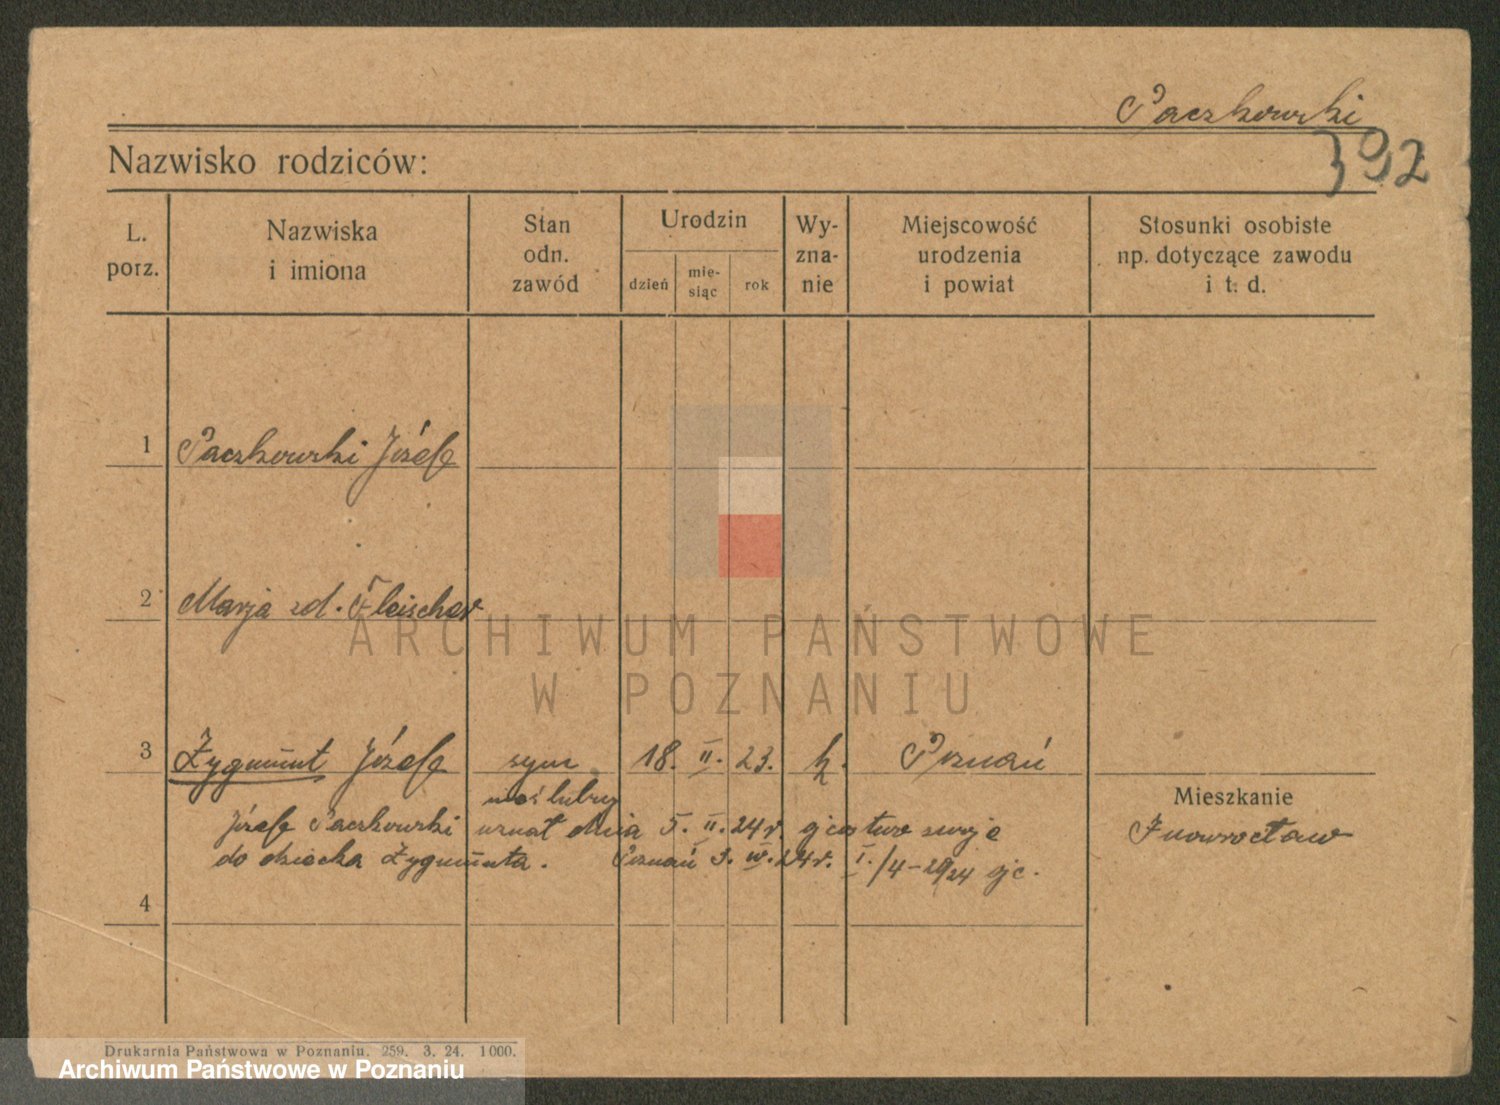 Paczkowski
392
Nazwisko rodziców:
L. porz.
Nazwiska i imiona
Stan odn. zawód
Urodzin
dzień
mie-
siąc
rok
Wy-
zna-
nie
Miejscowość urodzenia i powiat
Stosunki osobiste np. dotyczące zawodu i t. d.
1 Paczkowski Józef
2 Marja zd. Fleischer
ARCHIWUM PAŃSTWOWE
W POZNANIU
3 Zygmunt Józef syn 18. II. 23. k. Poznań
nieślubny
Mieszkanie
Józef Paczkowski uznał dnia 5. II. 24 r. ojcostwo swoje
Inowrocław
do dziecka Zygmunta. Poznań 3. IV. 24 r. I./4-29/24
4
Drukarnia Państwowa w Poznaniu. 259. 3. 24. 1000.
Archiwum Państwowe w Poznaniu